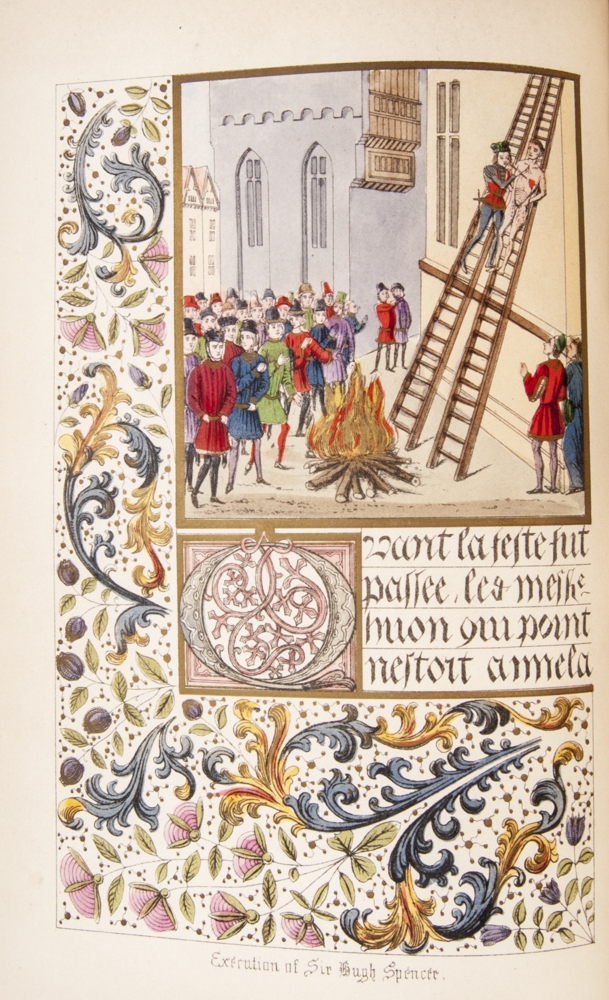 Quant la feste fut
passee . led
huon qui point
nestoit
Execution of Sir Hugh Spencer.